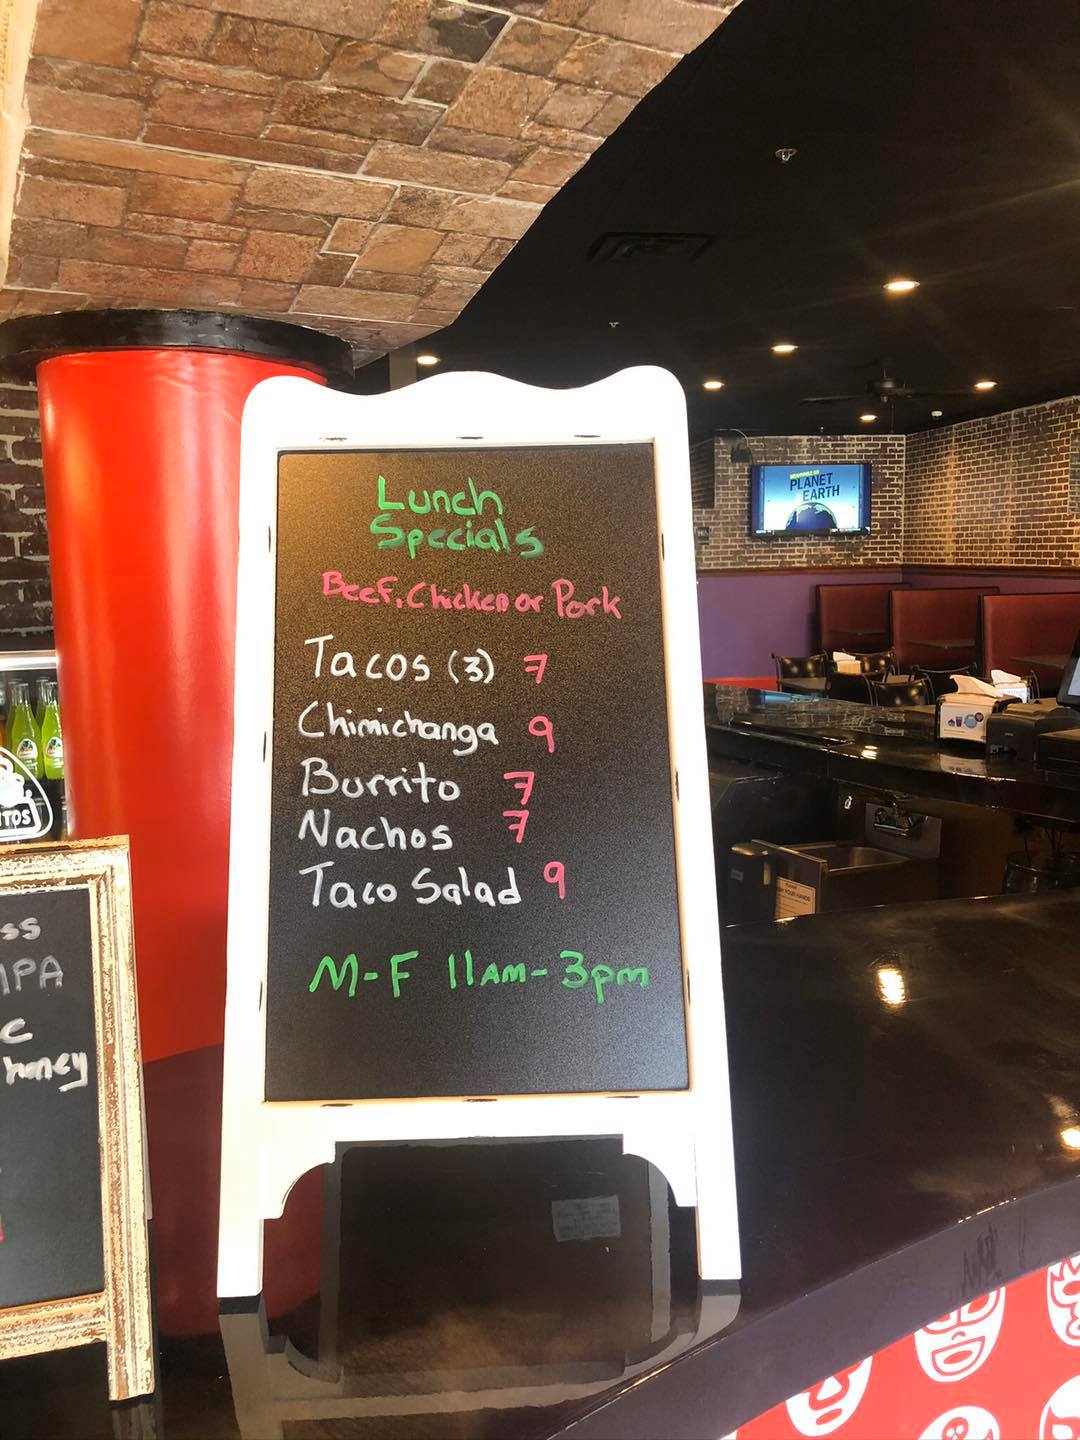 Lunch
Specials
Beef, Chicken or Pork
Tacos (3) 7
Chimichanga 9
Burrito 7
Nachos 7
Taco Salad 9
M-F 11AM-3pm
PLANET
EARTH
ITOS
ss
MPA
C
honey
YOUR HANDS